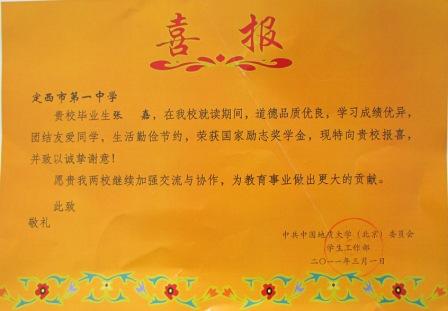 喜报
定西市第一中学
贵校毕业生张 嘉，在我校就读期间，道德品质优良，学习成绩优异，
团结友爱同学，生活勤俭节约，荣获国家励志奖学金，现特向贵校报喜，
并致以诚挚谢意！
愿贵我两校继续加强交流与协作，为教育事业做出更大的贡献。
此致
敬礼
中共中国地质大学（北京）委员会
学生工作部
二〇一一年三月一日